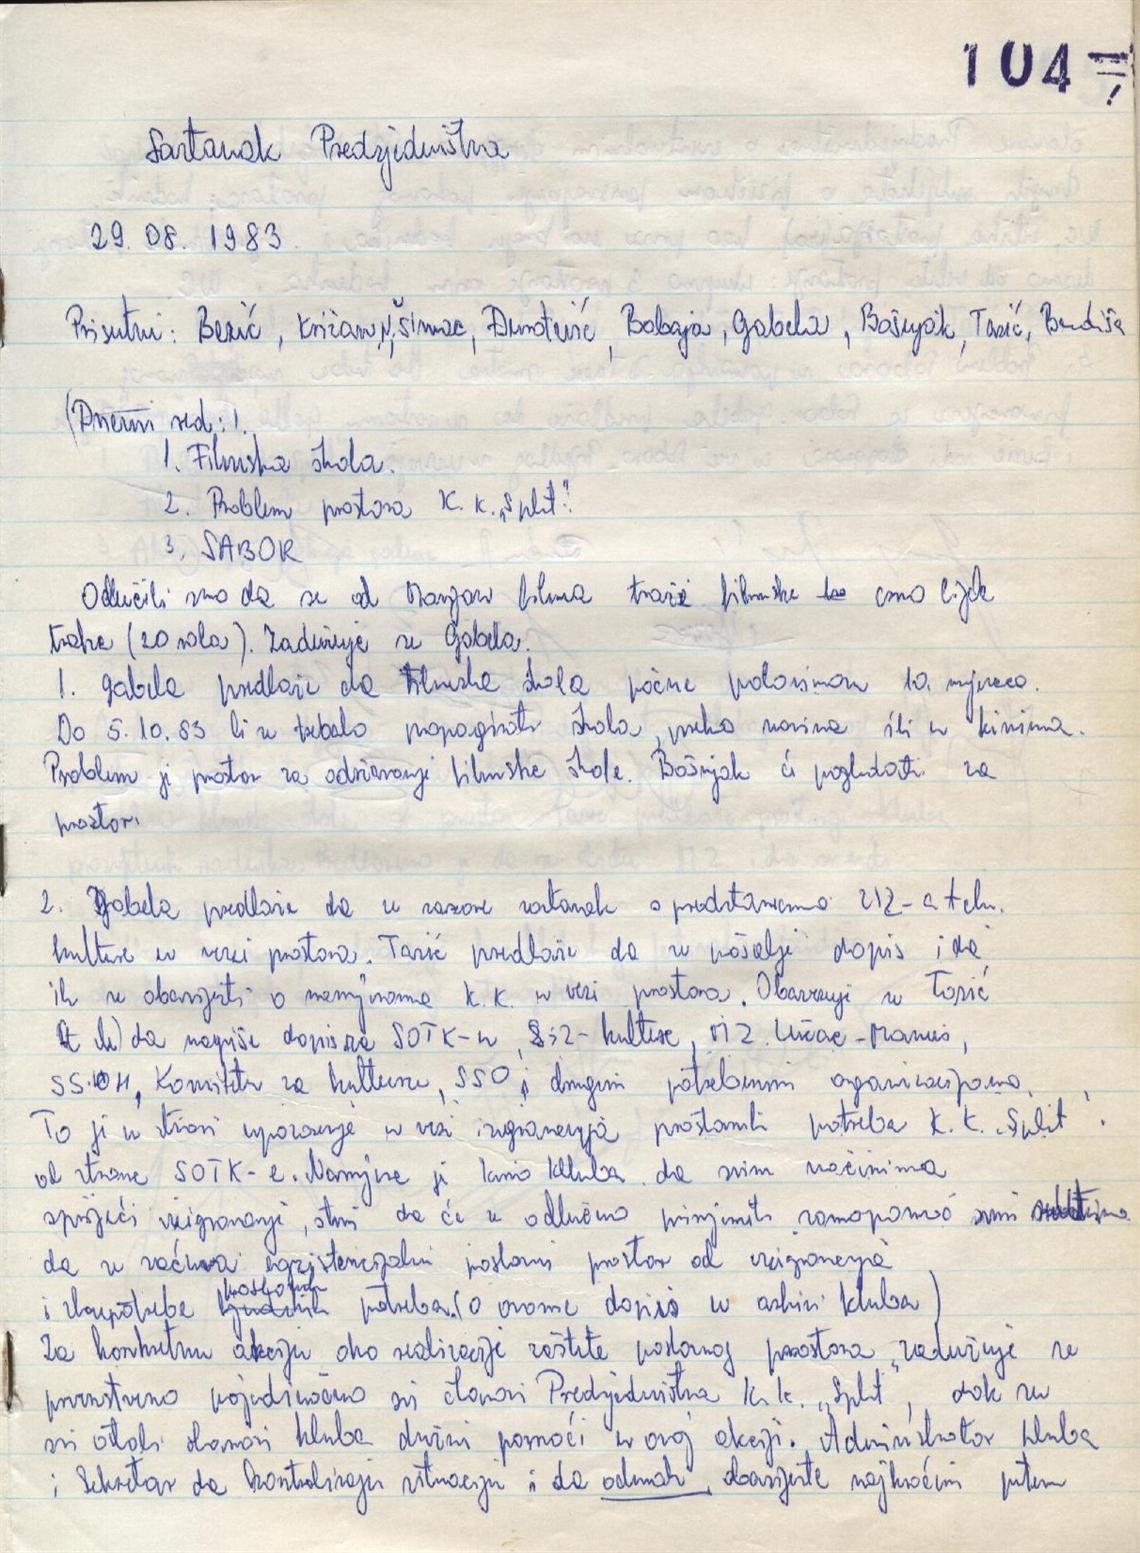 104
Sastanak Predsjedništva
29. 08. 1983.
Prisutni: Bezić, Križan, N, Šimac, Đurotević, Babaja, Gabela, Bošnjak, Tasić, Bandića
(Dnevni red: 1.
1. Filmska škola.
2. Problem prostora K. K. „Split".
3. SABOR
Odlučili smo da se od Marjan filma traži filmske crno bijele
trake (20 rola). Zadužuje se Gabela.
1. Gabela predlaže da Filmska škola počne polovinom 10. mjeseca.
Do 5. 10. 83 bi se trebalo propagirati škola, preko novina ili u kinima.
Problem je prostor za održavanje filmske škole. Bošnjak će pogledati za
prostor.
2. Gabela predlaže da se sazove sastanak s predstavnima SIZ-a tehn.
kulture u vezi prostora. Tasić predlaže da se pošalje dopis i da
ih se obavijesti o namjerama K. K. u vezi prostora. Obavezuje se Tasić
da napiše dopis za SOTK-u, SIZ- kulture, MZ. Lučac - Manuš,
SSOH, Komitetu za kulturu, SSO i drugim potrebnim organizacijama.
To je u stvari upozorenje u vezi izigravanja prostornih potreba K. K. „Split"
od strane SOTK-e. Namjera je Kino kluba da svim načinima
spriječi izigravanje, stoji da će se odlučno primjeniti samopomoć svim
da se sačuva egzistencijalni poslovni prostor od izigravanja
i zloupotrebe poslovnih potreba. (O ovome dopis u arhivi kluba)
Za konkretnu akciju oko realizacije zaštite poslovnog prostora, zadužuje se
prvenstveno pojedinačno svi članovi Predsjedništva K. K. „Split", dok su
svi ostali članovi kluba dužni pomoći u ovoj akciji. Administrator kluba
i Sekretar da kontroliraju situaciju i da odmah, obavijeste najkraćim putem